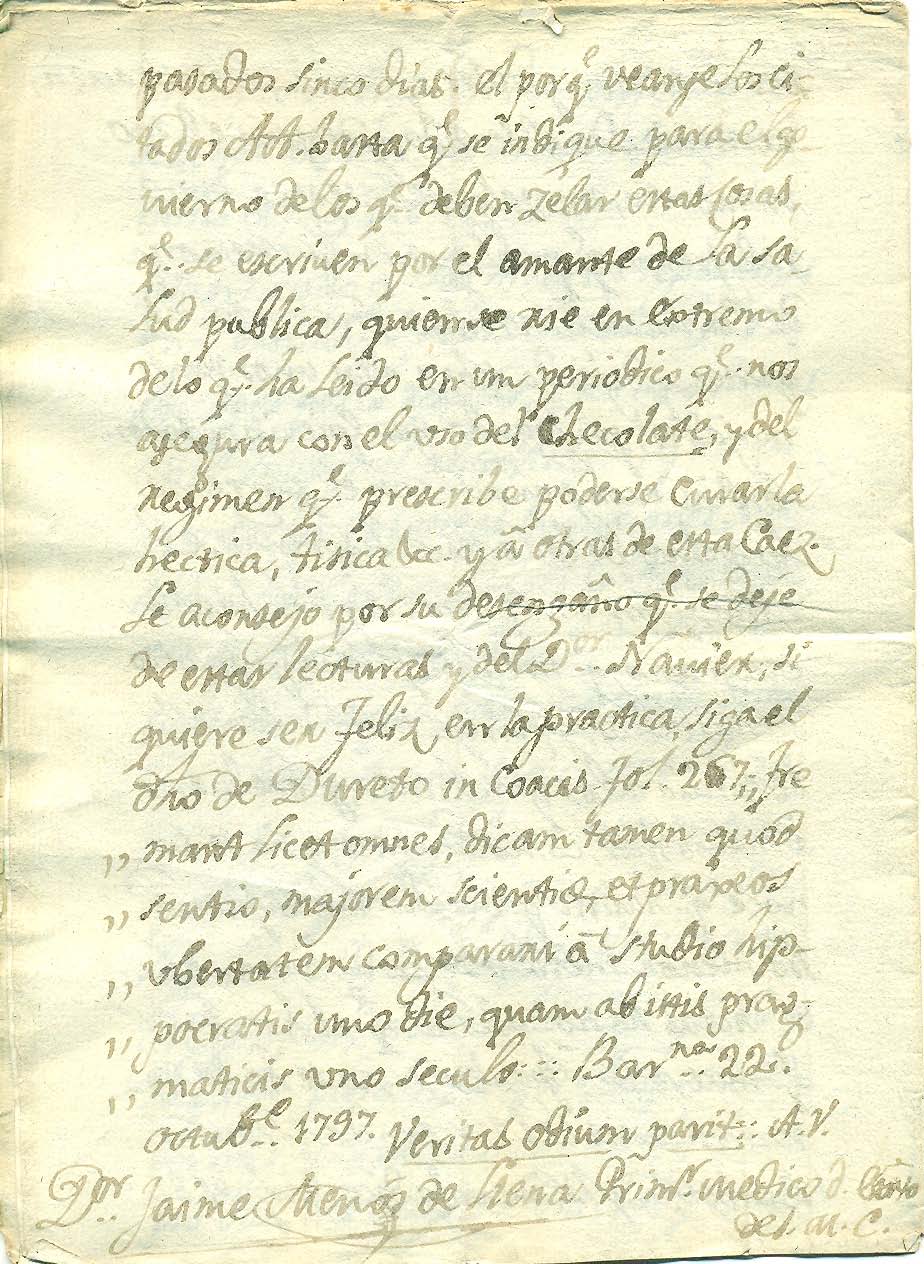 pasados sinco dias. el porq.e veanse los ci-
tados AA. basta q.e se indique para el go
vierno de los q.e deben zelar estas cosas,
q.e se escriven por el amante de la sa
lud publica, quien se rie en extremo
de lo q.e ha leido en un periodico q.e nos
asegura con el uso del Checolate, y del
regimen q.e prescribe poderse curar la
hectica, tisica &c. y a otras de esta Caez.
le aconsejo por su desengaño q.e se deje
de estas lecturas y del D.or Navier, si
quiere ser feliz en la practica, siga el
dño de Dureto in Coacis fol. 267,, fre
,, mant licet omnes, dicam tamen quod
,, sentio, majorem scientiæ, et praxeos
,, ubertatem comparari â studio hip-
,, pocratis uno die, quam ab istis prag-
,, maticis uno seculo::: Bar.na 22.
octub.e 1797. Veritas odium parit::: A.V.
D.or Jaime Menós de Llena Prim.r medico d.
de S. M. C.